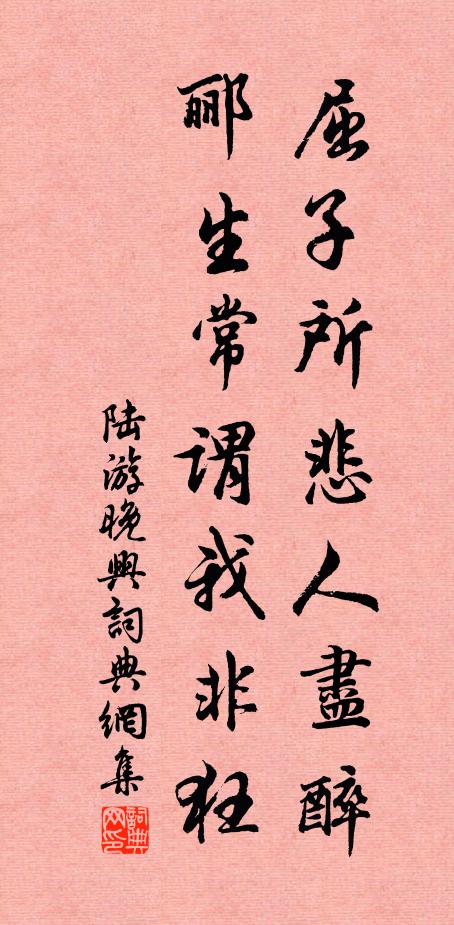 屈子所悲人盡醉
酈生常謂我非狂
陸游晚興詞典網集
詞典网印